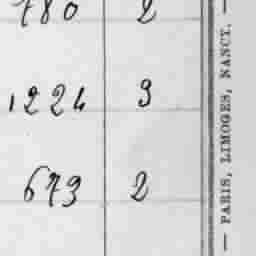 780 2
1224 3
673 2
— PARIS, LIMOGES, NANCY. —